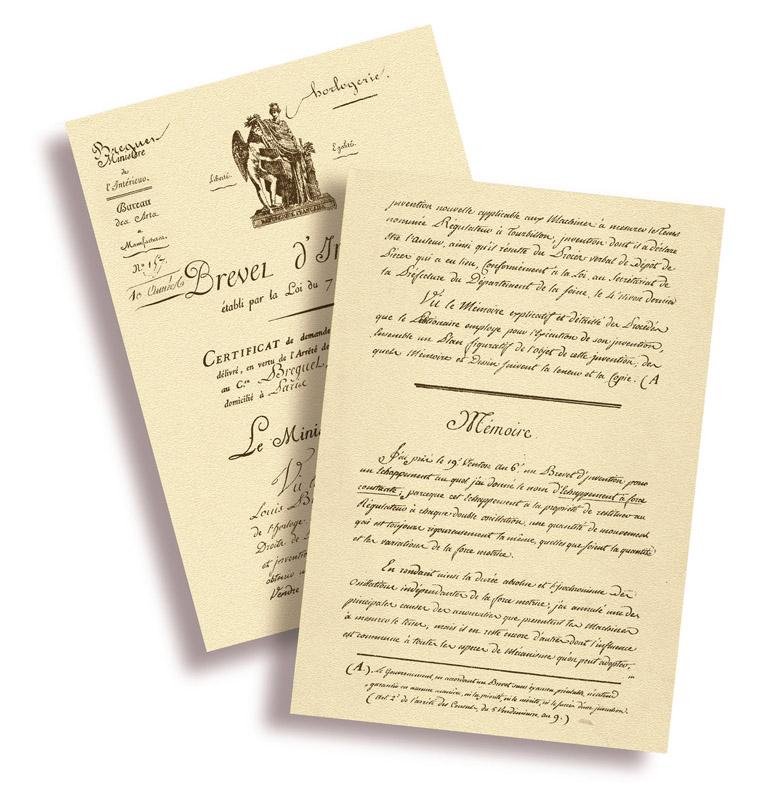 horlogerie.
Breguet
Ministère
de
l'Intérieur.
Bureau
des Arts
&
Manufactures.
Liberté.
Egalité.
RÉPUBLIQUE FRANÇAISE
N.º 157
Brevet d'In
établi par la Loi du 7
CERTIFICAT de demande
délivré, en vertu de l'Arrêté de
au C.en Breguet,
domicilié à Paris
Le Minis
Vu l
Louis B
de l'horloge
Droits de
et invention
obtenir
Vendre
invention nouvelle applicable aux Machines à mesurer le tems
nommée Régulateur à Tourbillon, invention dont il a déclaré
être l'auteur, ainsi qu'il résulte du Procès verbal de dépôt de
Pièces qui a eu lieu, Conformément à la Loi, au Secrétariat de
la Préfecture du Département de la Seine, le 4 nivose dernier
Vu le Mémoire explicatif et détaillé des Procédés
que le Pétitionnaire employe pour l'Exécution de son invention,
Ensemble un Plan figuratif de l'objet de cette invention, des
quels Mémoire et Dessin suivent la teneur et la Copie. (A
Mémoire.
J'ai pris le 19 Ventose an 6 un Brevet d'invention pour
un Echappement auquel j'ai donné le nom d'Echappement à force
constante; parceque cet Echappement a la propriété de restituer au
Régulateur à chaque double oscillation, une quantité de mouvement
qui est toujours rigoureusement la même, quelles que soient la quantité
et les variations de la force motrice.
En rendant ainsi la durée absolue et l'isochronisme des
Oscillations indépendantes de la force motrice; j'ai annulé une des
principales causes des anomalies que prennent les Machines
à mesurer le tems, mais il en reste encore d'autres dont l'influence
est commune à toutes les especes de Mécanisme qu'on peut adopter,
(A). Le Gouvernement, en accordant un Brevet sans examen préalable, n'entend
garantir en aucune manière, ni la priorité, ni le mérite, ni le succès d'une invention.
(Art. 2 de l'arrêté des Consuls, du 5 Vendémiaire, an 9.)